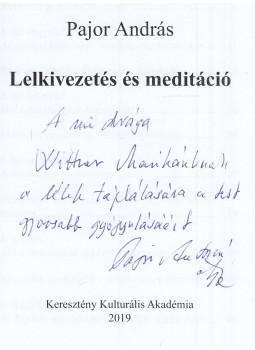 Pajor András
Lelkivezetés és meditáció
A mi drága
Wittner Marikánknak
a lélek táplálására a test
gyorsabb gyógyulásáért
Pajor András
Keresztény Kulturális Akadémia
2019